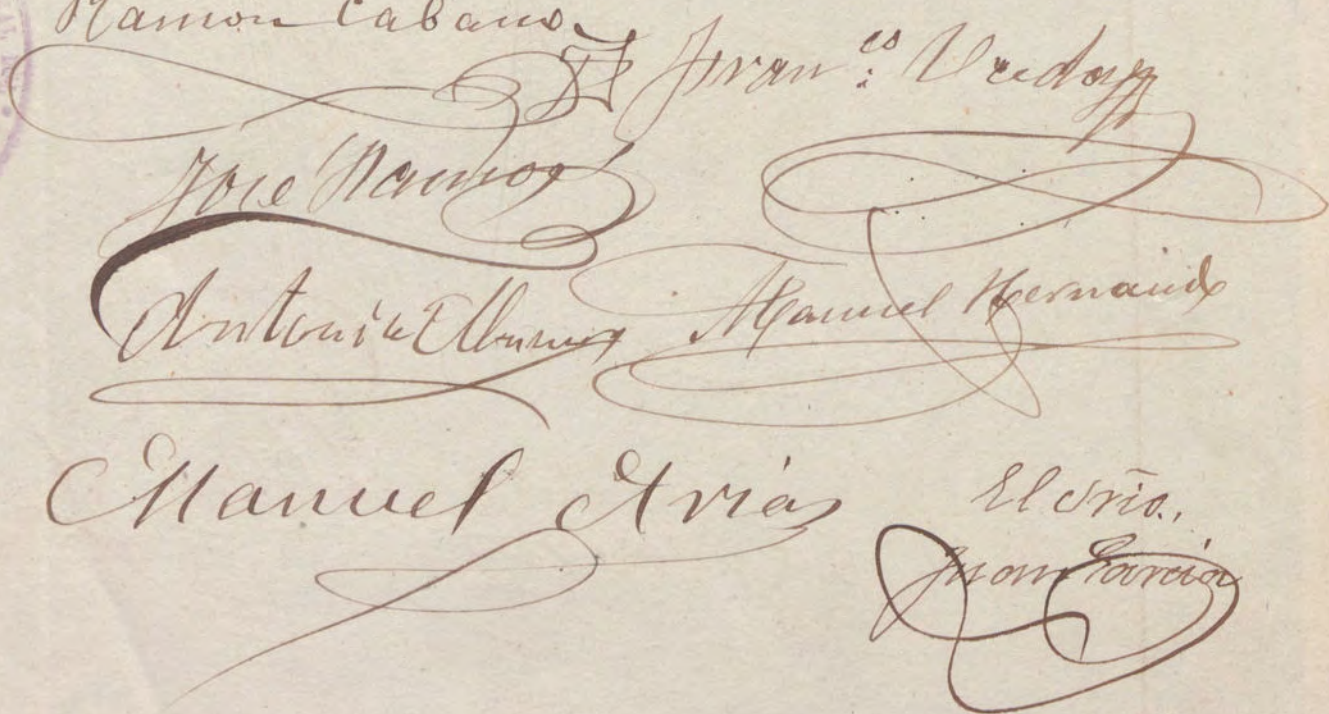 Ramon Cabano
Fran.co
Jose Ramos
Antonio
Manuel Hernande
Manuel Arias
El srio.
Juan Garcia